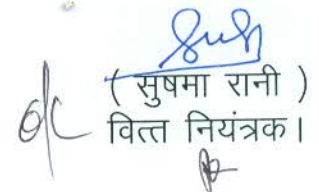 ( सुषमा रानी )
o/c वित्त नियंत्रक।